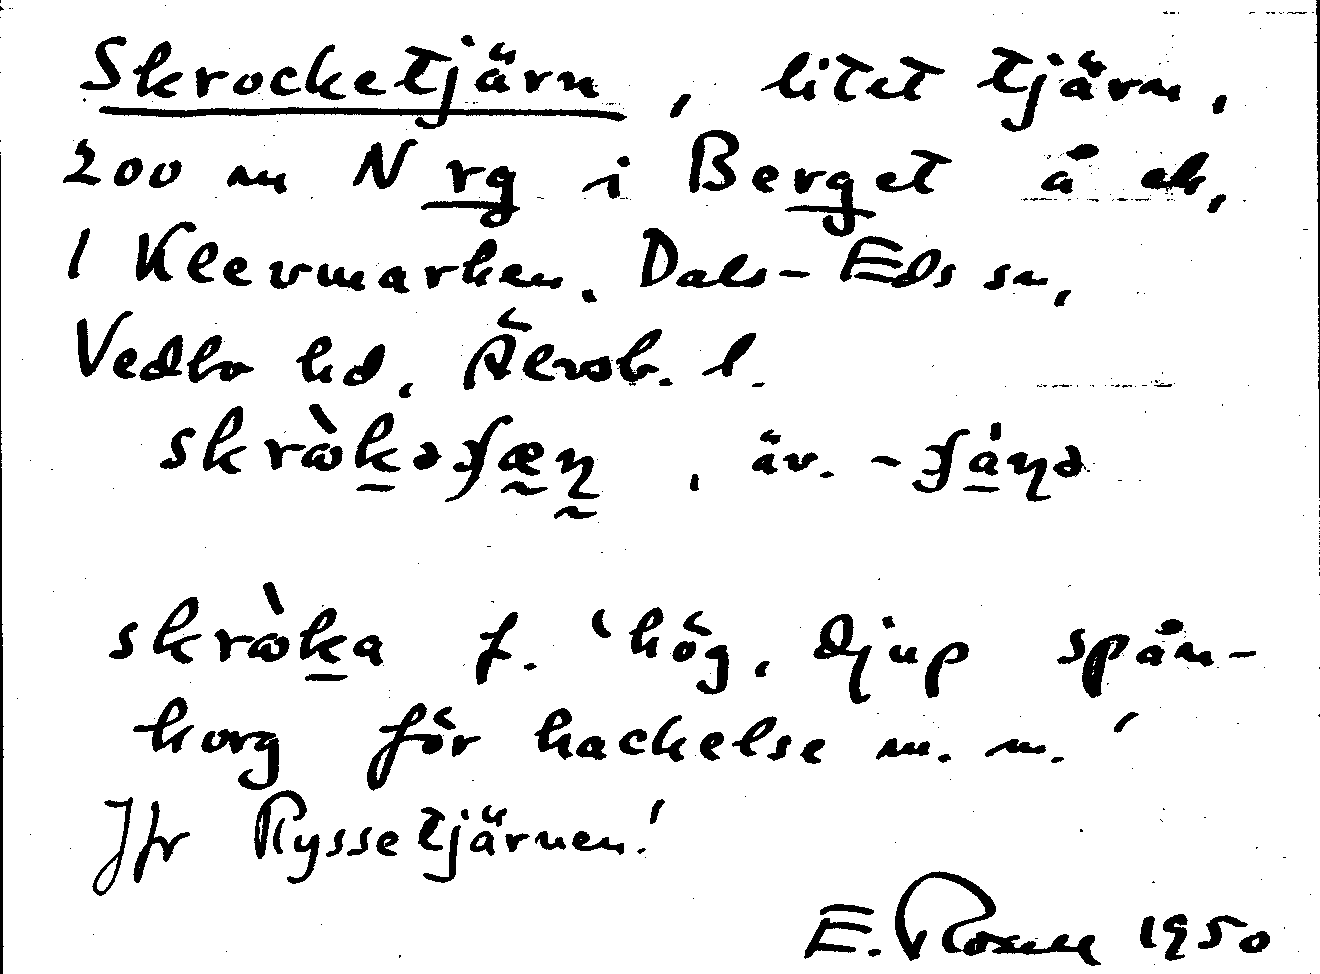 Skrocketjärn, litet tjärn,
200 m N rg i Berget å ek,
1 Klevmarken. Dals-Eds sn,
Vedbo hd, Älvsb. l.
skrὼkəʃæɳ, äv. -ʃáɳə
skrὼka f. 'hög, djup spån-
korg för hackelse m. m.'
Jfr Ryssetjärnen!
E. Rosell 1950